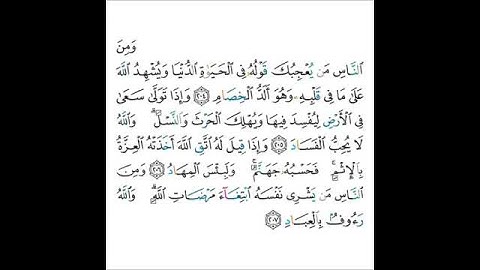 وَمِنَ
ٱلنَّاسِ مَن يُعْجِبُكَ قَوْلُهُۥ فِى ٱلْحَيَوٰةِ ٱلدُّنْيَا وَيُشْهِدُ ٱللَّهَ
عَلَىٰ مَا فِى قَلْبِهِۦ وَهُوَ أَلَدُّ ٱلْخِصَامِ ﴿٢٠٤﴾ وَإِذَا تَوَلَّىٰ سَعَىٰ
فِى ٱلْأَرْضِ لِيُفْسِدَ فِيهَا وَيُهْلِكَ ٱلْحَرْثَ وَٱلنَّسْلَ ۗ وَٱللَّهُ
لَا يُحِبُّ ٱلْفَسَادَ ﴿٢٠٥﴾ وَإِذَا قِيلَ لَهُ ٱتَّقِ ٱللَّهَ أَخَذَتْهُ ٱلْعِزَّةُ
بِٱلْإِثْمِ ۚ فَحَسْبُهُۥ جَهَنَّمُ ۚ وَلَبِئْسَ ٱلْمِهَادُ ﴿٢٠٦﴾ وَمِنَ
ٱلنَّاسِ مَن يَشْرِى نَفْسَهُ ٱبْتِغَآءَ مَرْضَاتِ ٱللَّهِ ۗ وَٱللَّهُ
رَءُوفٌۢ بِٱلْعِبَادِ ﴿٢٠٧﴾